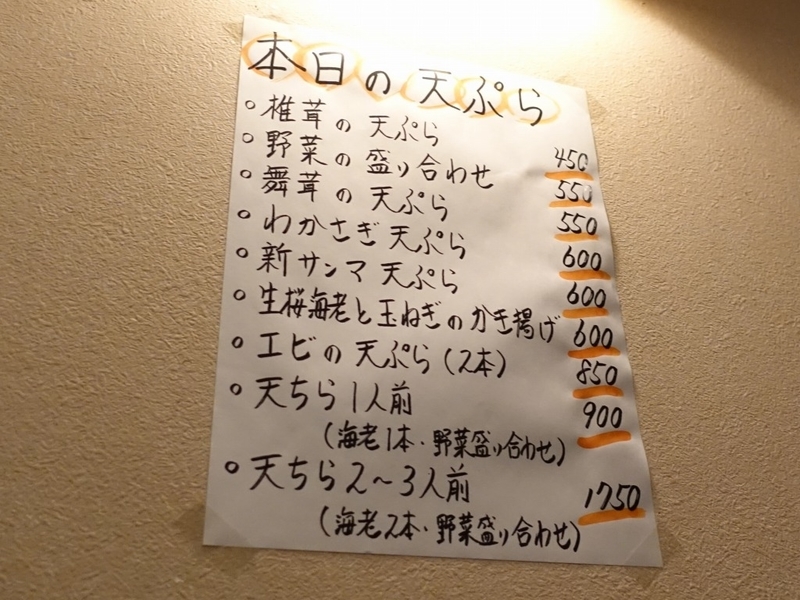 本日の天ぷら
○ 椎茸の天ぷら 450
○ 野菜の盛り合わせ 550
○ 舞茸の天ぷら 550
○ わかさぎ天ぷら 600
○ 新サンマ天ぷら 600
○ 生桜海老と玉ねぎのかき揚げ 600
○ エビの天ぷら(2本) 850
○ 天ちら1人前 900
(海老1本・野菜盛り合わせ)
○ 天ちら2〜3人前 1750
(海老2本・野菜盛り合わせ)